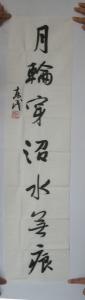 月輪穿沼水無痕